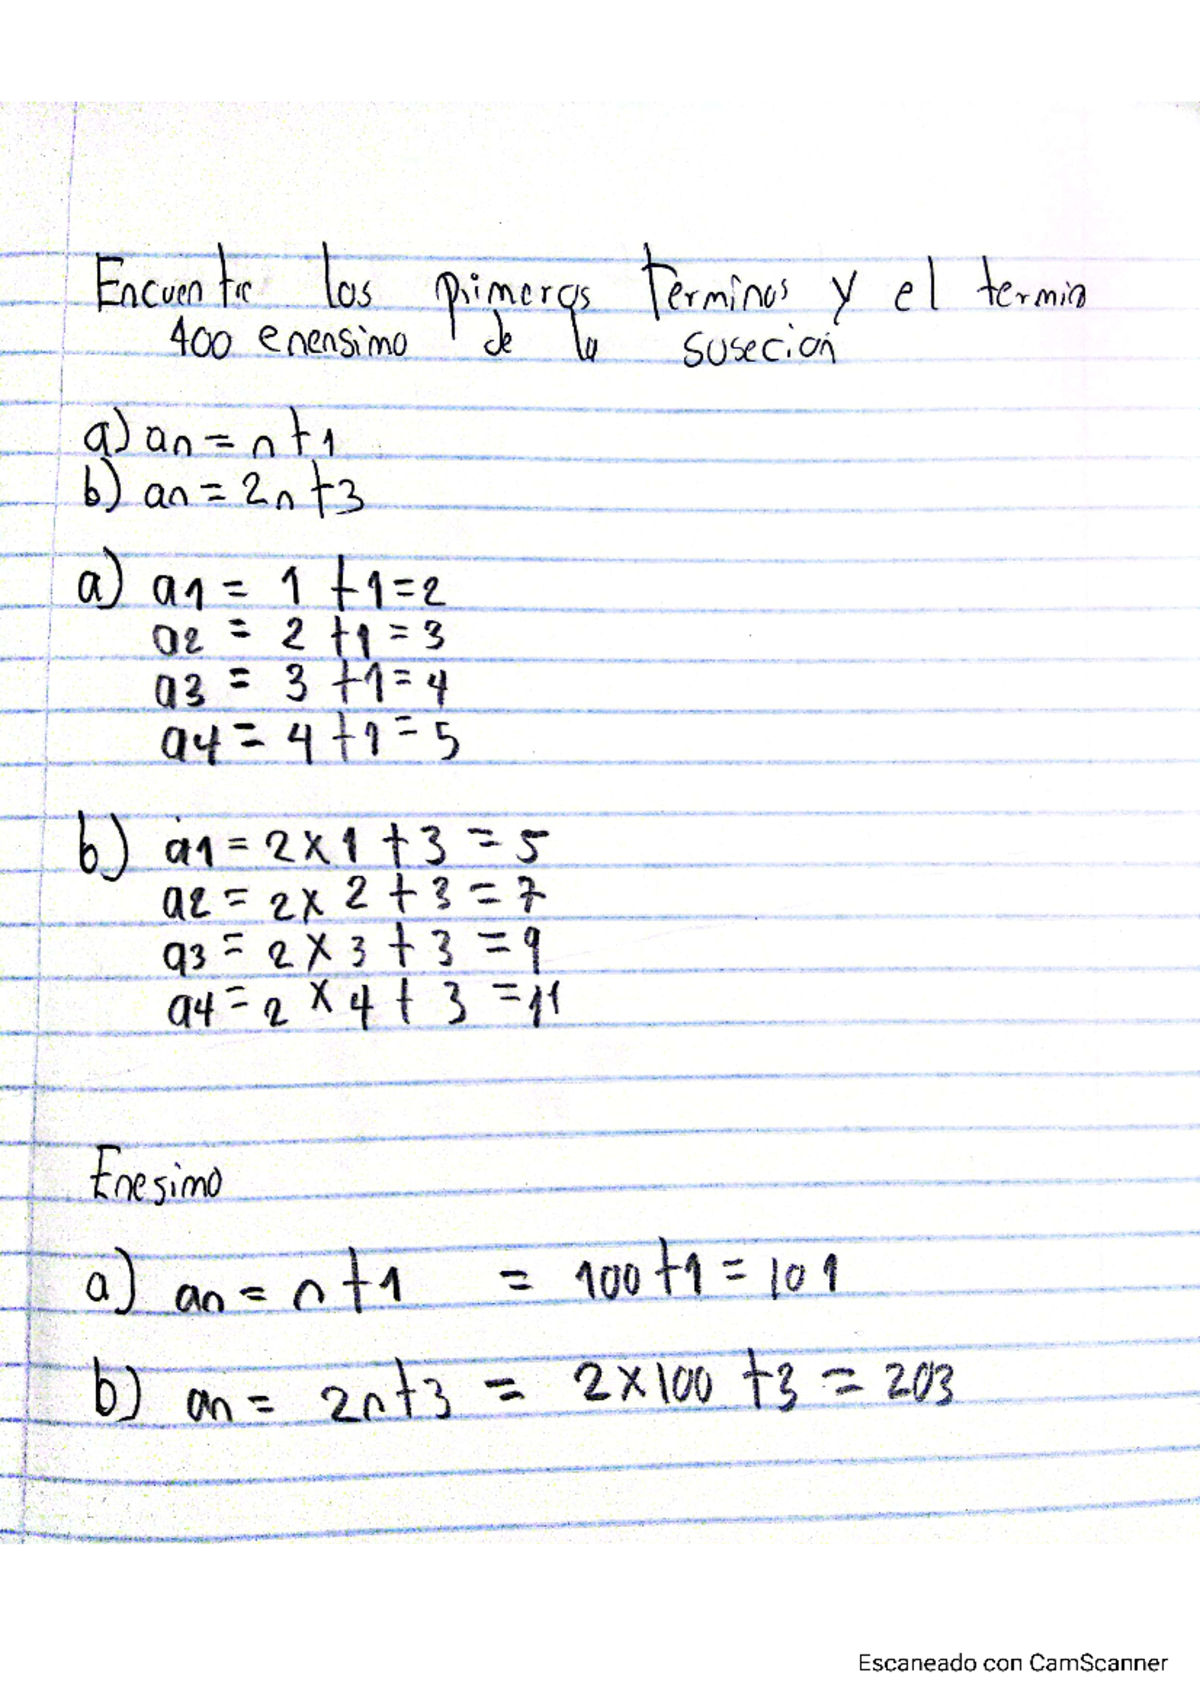 Encuentre los primeros terminos y el termio
400 enensimo de la suseción
a) an = n+1
b) an = 2n+3
a) a1 = 1 +1=2
a2 = 2 +1 = 3
a3 = 3 +1= 4
a4 = 4 +1 = 5
b) a1 = 2x1 +3 = 5
a2 = 2x 2 + 3 = 7
a3 = 2 x 3 + 3 = 9
a4 = 2 x 4 + 3 = 11
Enesimo
a) an = n+1 = 100+1 = 101
b) an = 2n+3 = 2x100 +3 = 203
Escaneado con CamScanner